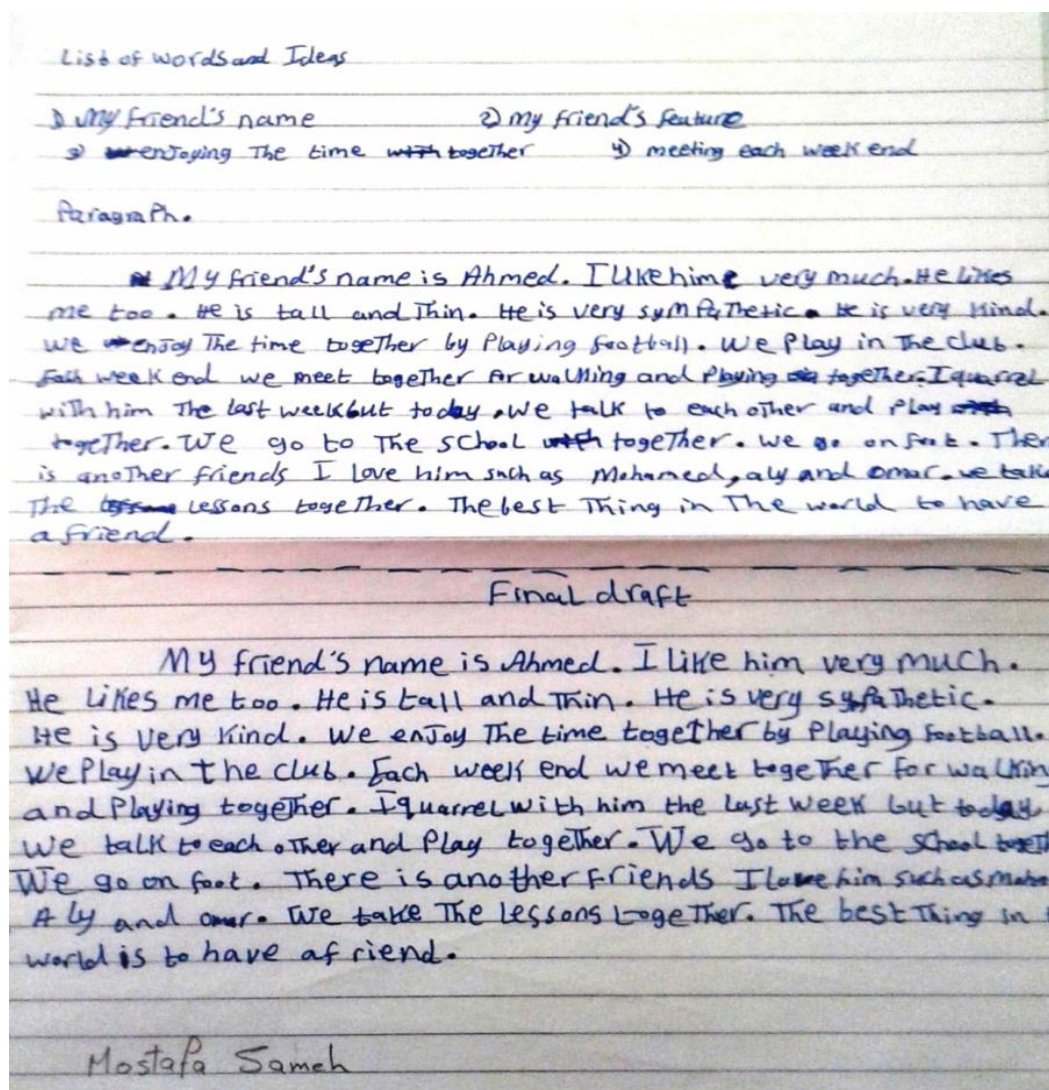 List of words and Ideas
1) My friend's name 2) my friend's feature
3) enjoying The time together 4) meeting each week end
Paragraph.
My friend's name is Ahmed. I like hime very much. He likes
me too. He is tall and Thin. He is very sympathetic. He is very kind.
we enjoy The time together by Playing football. We Play in The club.
Each week end we meet together for walking and Playing together. I quarrel
with him The last week but today, we talk to each other and Play
together. We go to The school together. we go on foot. Ther
is another friends I love him such as Mohamed, aly and omar. we take
The Lessons together. The best Thing in The world to have
a friend.
Final draft
My friend's name is Ahmed. I like him very much.
He Likes me too. He is tall and Thin. He is very sypathetic.
He is very kind. We enjoy The time together by Playing football.
We Play in the club. Each week end we meet together for walkin
and Playing together. I quarrel with him the last week but today
We talk to each other and Play together. We go to the school togeth
We go on foot. There is another friends I love him such as Moha
Aly and omar. We take The Lessons together. The best Thing in t
world is to have a friend.
Mostafa Sameh